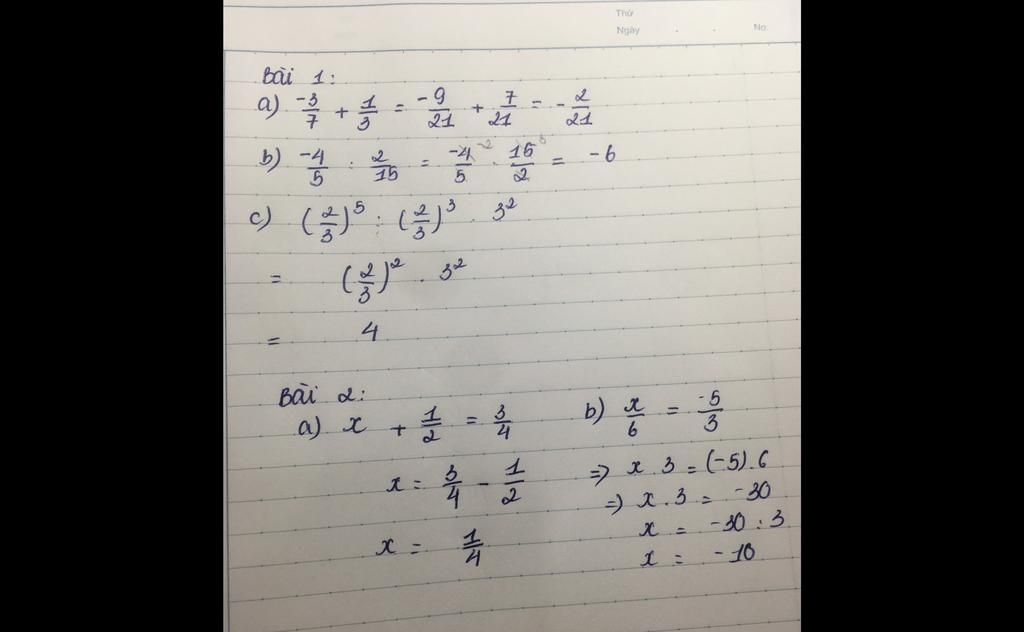 Thứ
Ngày . . No.
Bài 1:
a) -3/7 + 1/3 = -9/21 + 7/21 = - 2/21
b) -4/5 : 2/15 = -4/5 . 15/2 = -6
c) (2/3)^5 : (2/3)^3 . 3^2
= (2/3)^2 . 3^2
= 4
Bài 2:
a) x + 1/2 = 3/4 b) x/6 = -5/3
x = 3/4 - 1/2 => x . 3 = (-5) . 6
=> x . 3 = -30
x = 1/4 x = -30 : 3
x = -10